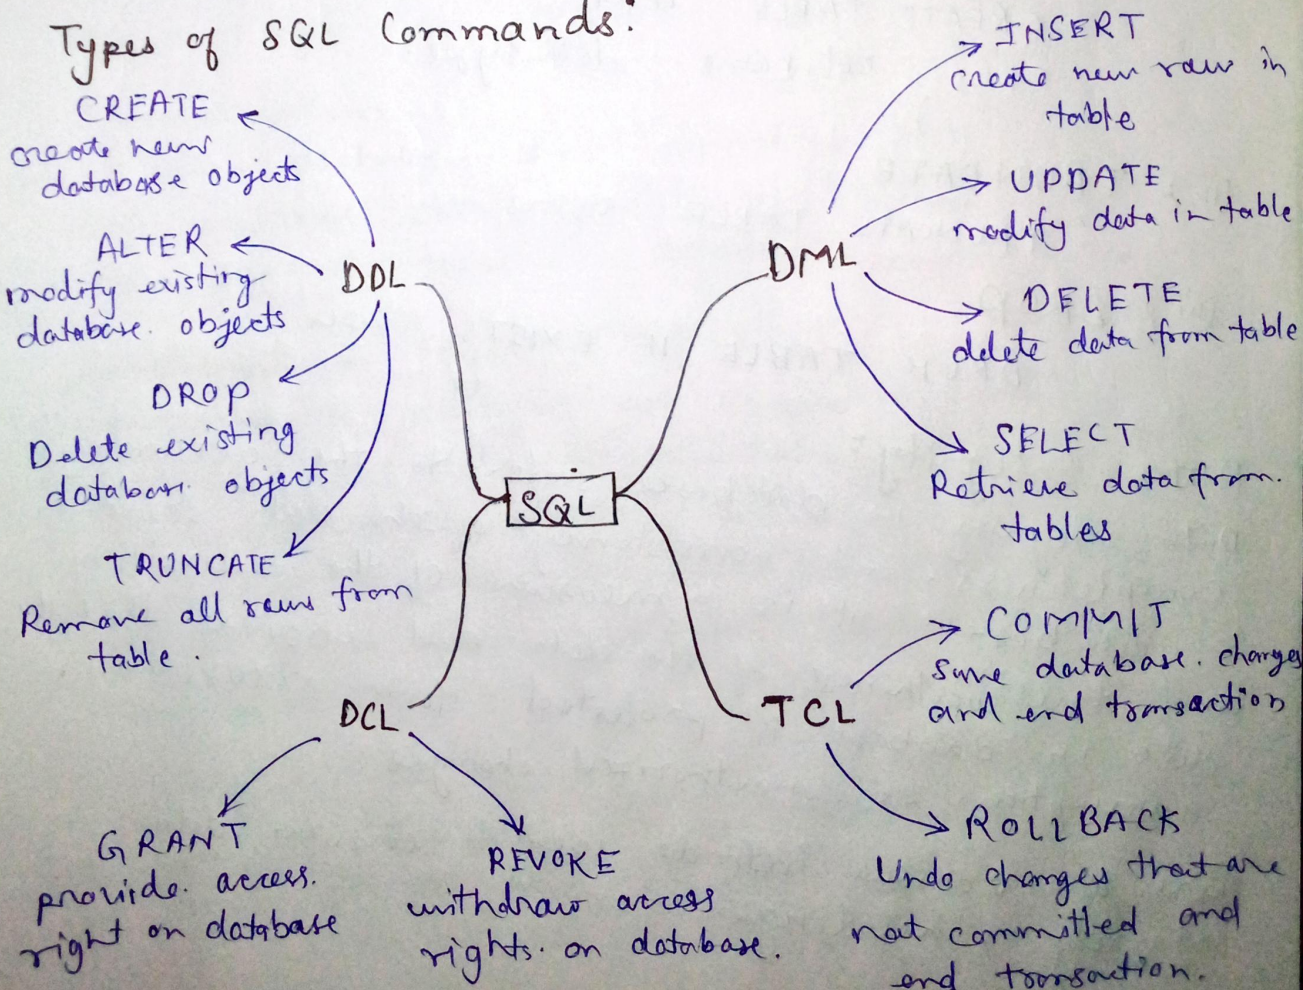 Types of SQL Commands:
CREATE
create new
database objects
ALTER
modify existing
database. objects
DROP
Delete existing
database. objects
TRUNCATE
Remove all rows from
table.
DDL
DML
INSERT
create new row in
table
UPDATE
modify data in table
DELETE
delete data from table
SELECT
Retrieve data from.
tables
SQL
DCL
GRANT
provide. access.
right on database
REVOKE
withdraw access
rights. on database.
TCL
COMMIT
Save database. changes
and end transaction
ROLLBACK
Undo changes that are
not committed and
end transaction.